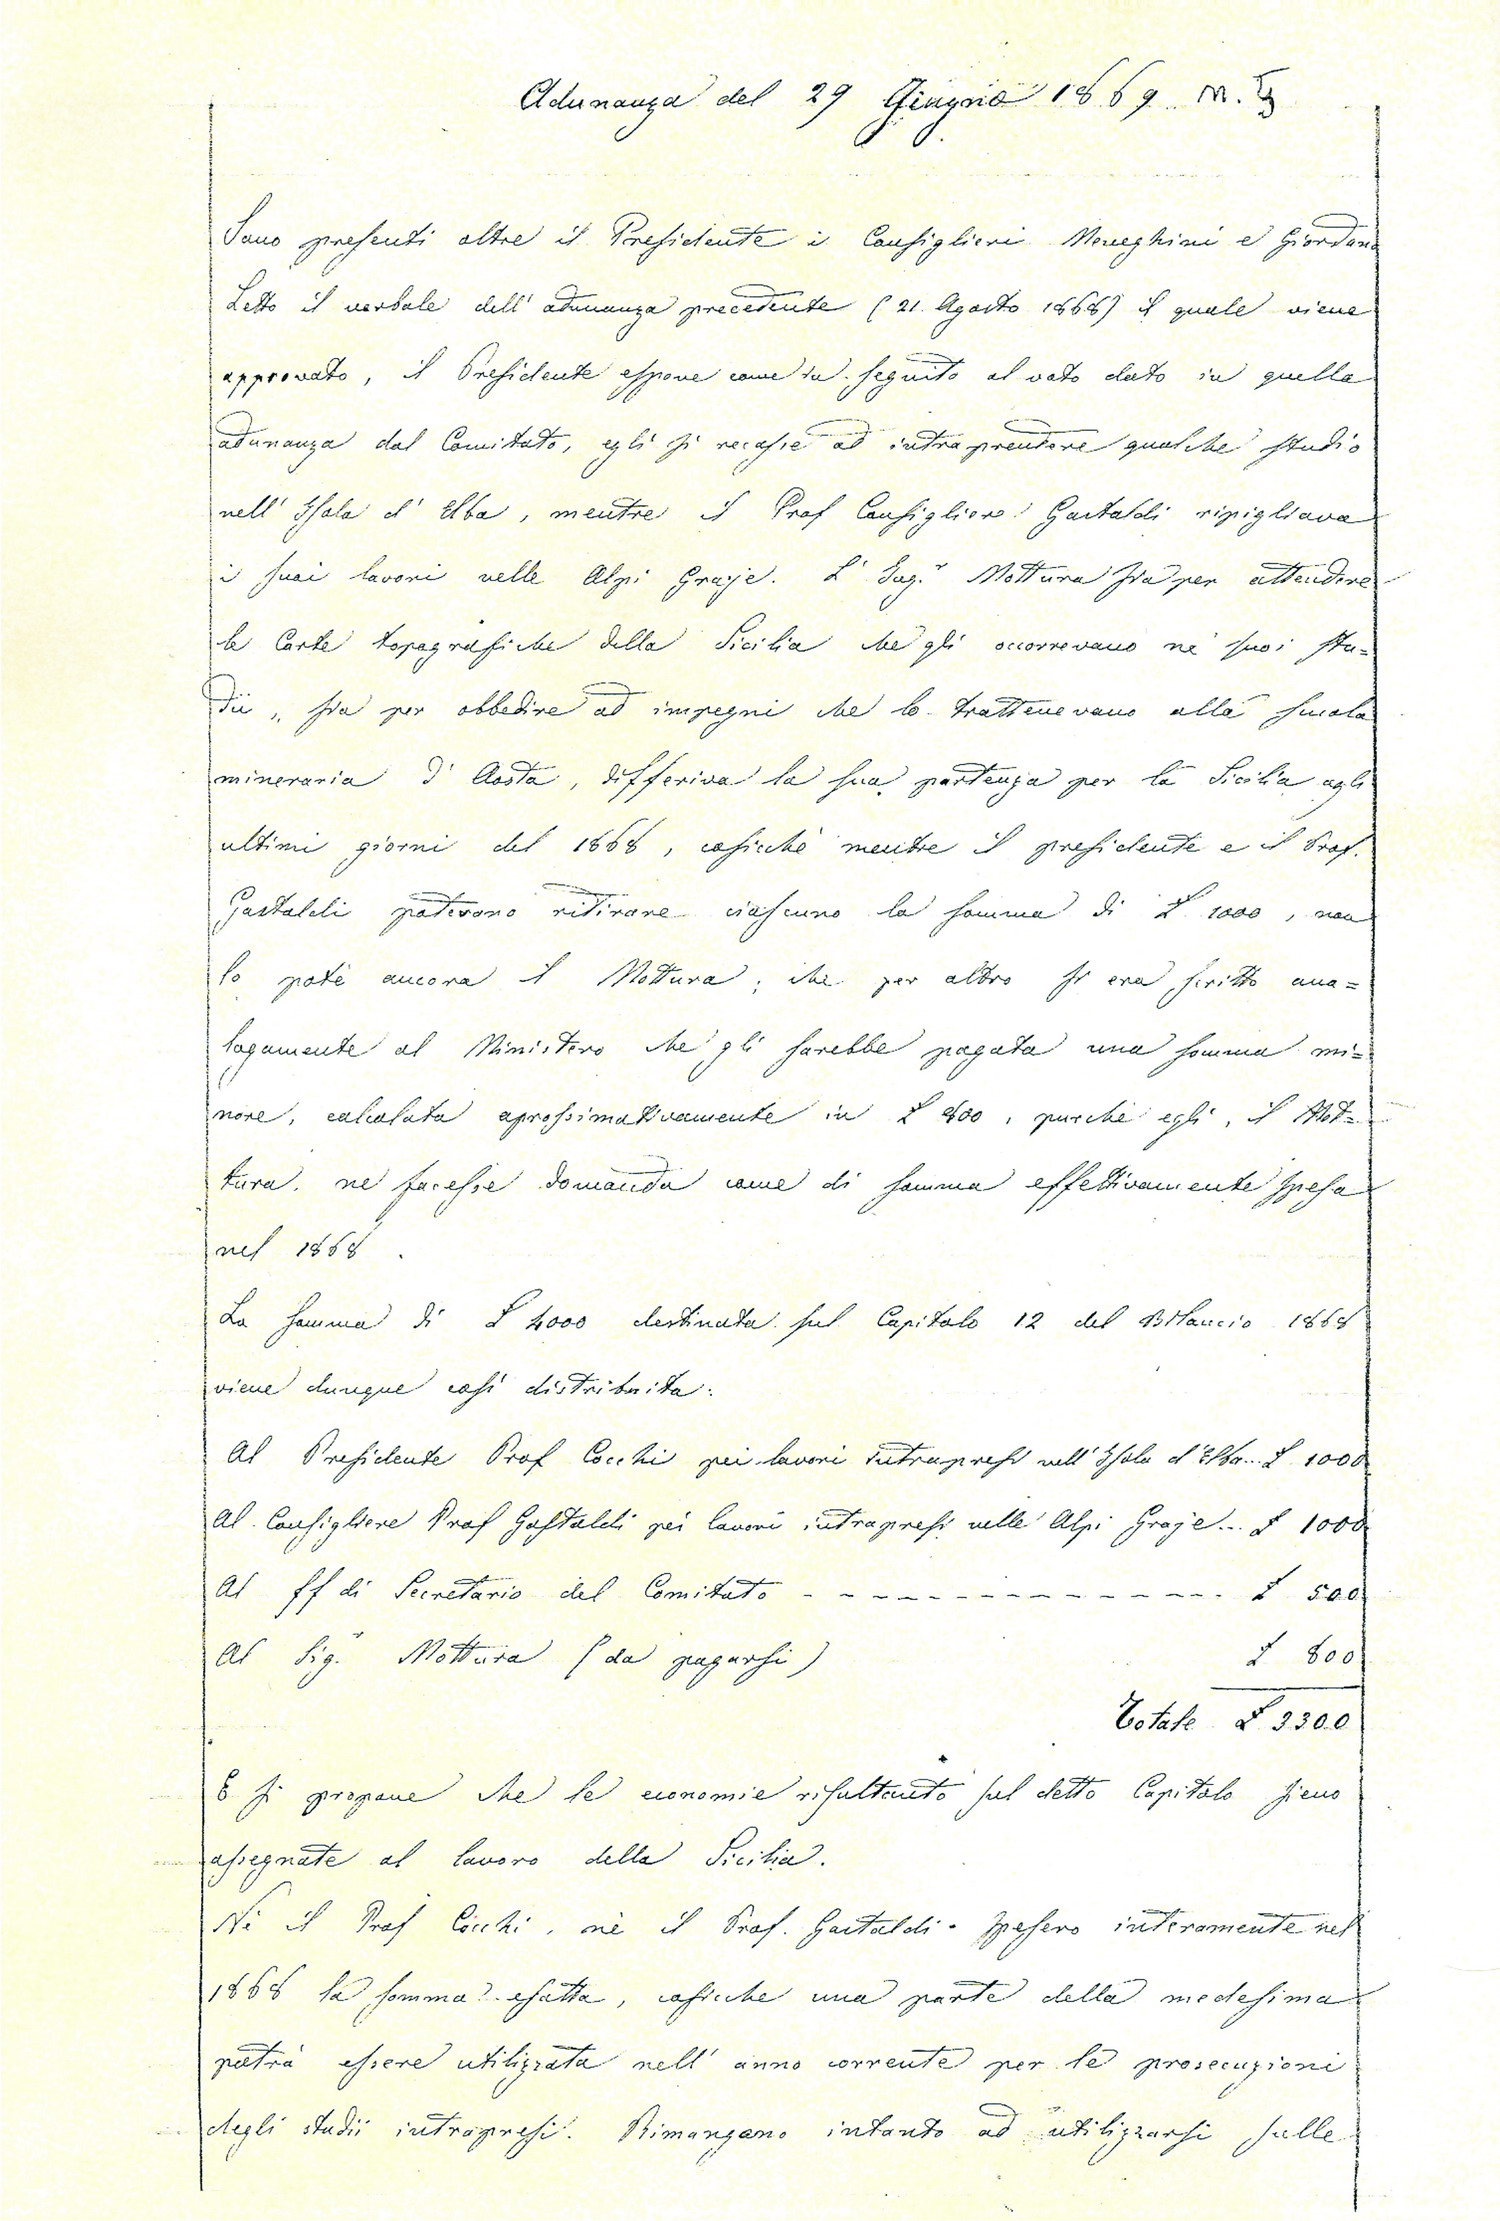 Adunanza del 29 Giugno 1869
Sono presenti oltre il Presidente i Consiglieri Meneghini e Giordano
Letto il verbale dell' adunanza precedente (21. Agosto 1868) il quale viene
approvato, il Presidente espone come in seguito al voto dato in quella
adunanza dal Comitato, egli si recasse ad intraprendere qualche studio
nell' Isola d' Elba, mentre il Prof Consigliere Gastaldi ripigliava
i suoi lavori nelle Alpi Graje. L' Ing.r Mottura sia per attendere
le Carte topografiche della Sicilia che gli occorrevano ne' suoi stu=
dii, sia per obbedire ad impegni che lo trattenevano alla scuola
mineraria d' Aosta, differiva la sua partenza per la Sicilia agli
ultimi giorni del 1868, cosicchè mentre il presidente e il Prof.
Gastaldi poterono ritirare ciascuno la somma di £ 1000, non
lo potè ancora il Mottura; che per altro si era scritto ana=
logamente al Ministero che gli sarebbe pagata una somma mi=
nore, calcolata aprossimativamente in £ 800, purchè egli, il Mot=
tura, ne facesse domanda come di somma effettivamente spesa
nel 1868.
La somma di £ 4000 destinata sul Capitolo 12 del Bilancio 1868
viene dunque così distribuita:
Al Presidente Prof Cocchi pei lavori intrapresi nell' Isola d' Elba... £ 1000
Al Consigliere Prof Gastaldi pei lavori intrapresi nelle Alpi Graje... £ 1000
Al ff di Secretario del Comitato - - - - - - - - - - - - - - - £ 500
Al Sig.r Mottura (da pagarsi) £ 800
Totale £ 3300
E si propone che le economie risultanti sul detto Capitolo sieno
assegnate al lavoro della Sicilia.
Nè il Prof Cocchi, nè il Prof. Gastaldi spesero interamente nel
1868 la somma esatta, cosicche una parte della medesima
potrà essere utilizzata nell' anno corrente per le prosecuzioni
degli studii intrapresi. Rimangano intanto ad utilizzarsi sulle